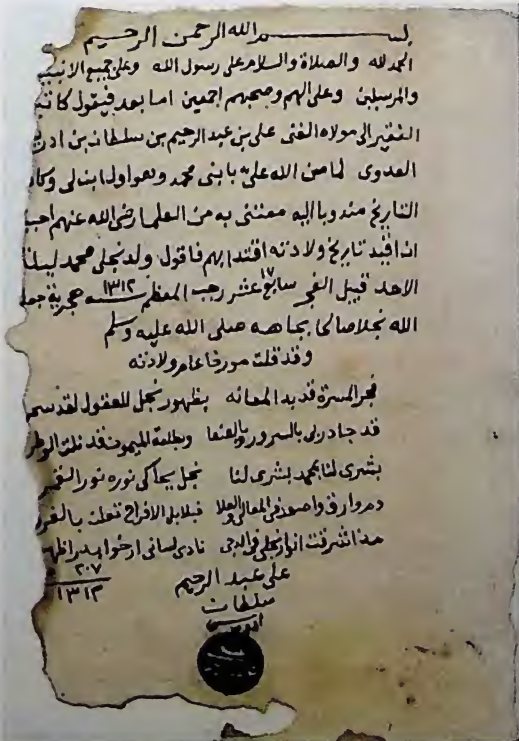 بسم الله الرحمن الرحيم
الحمد لله والصلاة والسلام على رسول الله وعلى جميع الانبيا
والمرسلين وعلى الهم وصحبهم اجمعين اما بعد فيقول كاتبه
الفقير الى مولاه الغنى على بن عبد الرحيم بن سلطان بن ادريس
العدوى لما من الله على بابنى محمد وهو اول ابن لى وكان
التاريخ مندوبا اليه معتنى به من العلما رضى الله عنهم احببت
ان اقيد تاريخ ولادته اقتدا بهم فاقول ولد نجلى محمد ليلة
الاحد قبيل الفجر سابع عشر ١٧ رجب المعظم ١٣١٢ سنة هجرية جعله
الله نجلا صالحا بجاهه صلى الله عليه وسلم
وقد قلت مورخا عام ولادته
فجر المسرة قد بدا بظهور نجل للعقول لقد سحر
قد جاد ربى بالسرور وبالهنا وبطلعة الميمون قد نلت الوطر
بشرى لنا بمحمد بشرى لنا نجل يحاكى نوره نور القمر
دم وارق واصعد فى المعالى والعلا فبلابل الافراح
مذ اشرقت انوار نجلى فى الدجى نادى لسانى ارخوا بدر ظهر
٢٠٧
١٣١٢
على عبد الرحيم
سلطان
ادريس